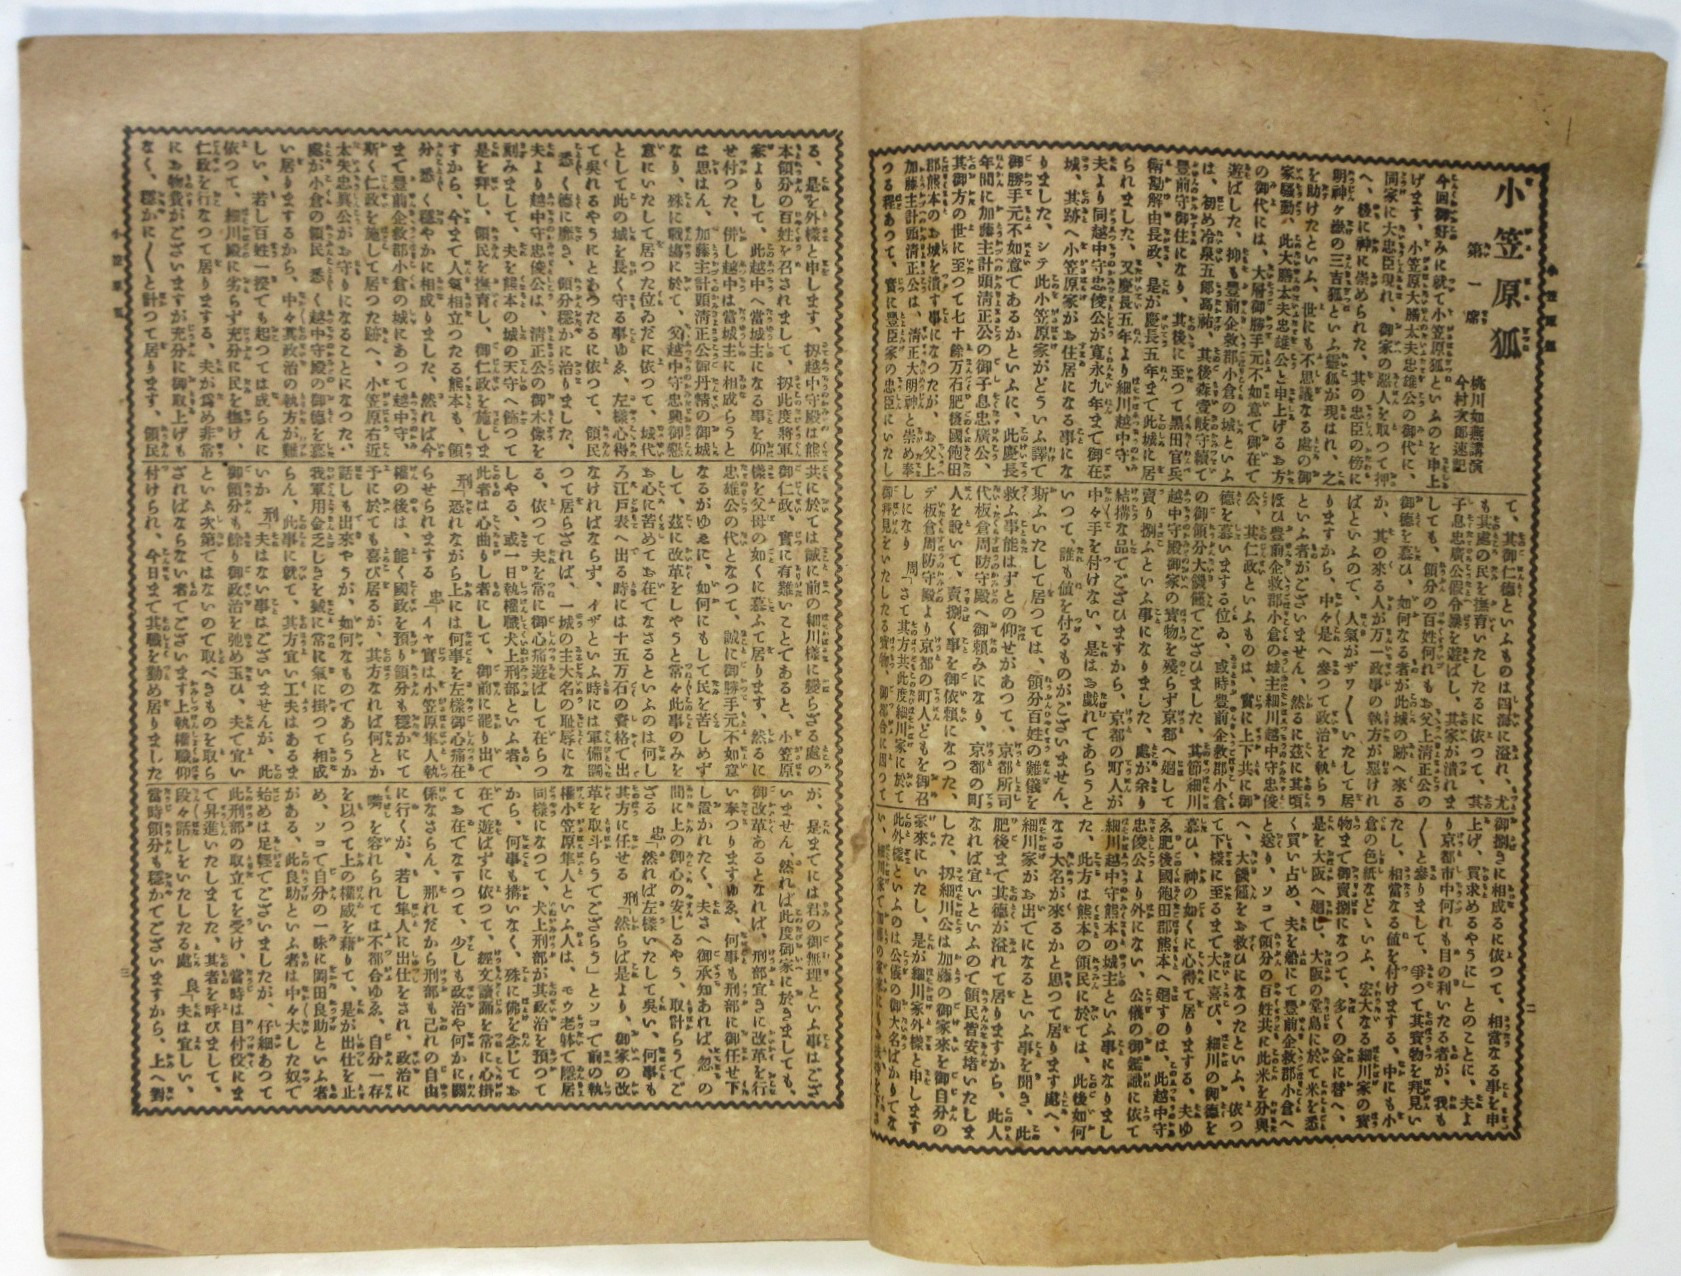 小笠原狐
小笠原狐
第一席
桃川如燕講演
今村次郎速記
今回御好みに就て小笠原狐といふのを申上
げます、小笠原大膳太夫忠雄公の御代に、
同家に大忠臣現れ、御家の惡人を取つて押
へ、後に神に崇められた、其の忠臣の傍に
明神ヶ嶽の三吉狐といふ靈狐が現はれ、之
を助けたといふ、世にも不思議なる處の御
家騷動、此大膳太夫忠雄公と申上げるお方
の御代には、大層御勝手元不如意で御在で
遊ばした、抑も豐前企救郡小倉の城といふ
は、初め冷泉五郎高祐、其後森壹岐守續て
豐前守御住になり、其後に至つて黑田官兵
衛勘解由長政、是が慶長五年まで此城に居
られました、又慶長五年より細川越中守、
夫より同越中守忠俊公が寛永九年まで御在
城、其跡へ小笠原家がお住居になる事にな
りました、シテ此小笠原家がどういふ譯で
御勝手元不如意であるかといふに、此慶長
年間に加藤主計頭清正公の御子息忠廣公、
其御方の世に至つて七十餘万石肥後國飽田
郡熊本のお城を潰す事になつたが、お父上
加藤主計頭清正公は、清正大明神と崇め奉
つる程あつて、實に豐臣家の忠臣にいたし
て、其御仁德といふものは四海に溢れ、尤
も其處の民を撫育いたしたるに依つて、其
子息忠廣公假令暴を遊ばし、其家が潰れま
しても、領分の百姓何れもお父上清正公の
御德を慕ひ、如何なる者が此城の跡へ來る
か、其の來る人が万一政事の執方が惡けれ
ばといふので、人氣がザワ〱いたして居
りますから、中々是へ參つて政治を執らう
といふ者がございません、然るに茲に其頃
ほひ豐前企救郡小倉の城主細川越中守忠俊
公、其仁政といふものは、實に上下共に御
德を慕います位ゐ、或時豐前企救郡小倉
の御領分大饑饉でござひました、其節細川
越中守殿御家の寶物を殘らず京都へ廻して
賣り捌ふといふ事になりました、處が餘り
結搆な品でござひますから、京都の町人が
中々手を付けない、是はお戯れであらうと
いつて、誰も値を付るものがございません、
斯ふいたして居つては、領分百姓の難儀を
救ふ事能はずとの仰せがあつて、京都所司
代板倉周防守殿へ御賴みになり、京都の町
人を說いて、賣捌く事を御依賴になつた、
デ板倉周防守殿より京都の町人どもを御召
しになり　周「さて其方共此度細川家に於て
御捌きに相成るに依つて、相當なる事を申
上げ、買求めるやうに」とのことに、夫よ
り京都市中何れも目の利いたる者が、我も
〱と參りまして、爭つて其寶物を拜見い
たし、相當なる値を付けまする、中にも小
倉の色紙などゝいふ、宏大なる細川家の寶
物まで御賣捌になつて、多くの金に替へ、
是を大阪へ廻し、大阪の堂島に於て米を悉
く買い占め、夫を船にて豐前企救郡小倉へ
と送り、ソコで領分の百姓共に此米を分與
へ、大饑饉をお救ひになつたといふ、依つ
て下樣に至るまで大に喜び、細川の御德を
慕ひ、神の如くに心得て居りまする、夫ゆ
ゑ肥後國飽田郡熊本へ廻すのは、此越中守
忠俊公より外にない、公儀の御鑑識に依て
細川越中守熊本の城主といふ事になりまし
た、此方は熊本の領民に於ては、此後如何
なる大名が來るかと思つて居ります處へ、
細川家がお出でになるといふ事を聞き、此
肥後まで其德が溢れて居りますから、此人
なれば宜いといふので領民皆安堵いたしま
した、扨細川公は加藤の御家來を御自分の
家來にいたし、是が細川家外樣と申します
此外樣といふのは公儀の御大名ばかりでな
る、是を外樣と申します、扨越中守殿は熊
本領分の百姓を召されまして、扨此度將軍
家よりして、此越中へ當城主になる事を仰
せ付つた、併し越中は當城主に相成らうと
は思はん、加藤主計頭清正公御丹精の御城
なり、殊に戰場に於て、父越中守忠興御懇
意にいたして居つた位ゐだに依つて、城代
として此の城を長く守る事ゆゑ、左樣心得
て吳れるやうにとあつたるに依つて、領民
悉く德に靡き、領分穩かに治りました、
夫より越中守忠俊公は、清正公の御木像を
刻みまして、夫を熊本の城の天守へ飾つて
是を拜し、領民を撫育し、御仁政を施しま
すから、今まで人氣相立つたる熊本も、領
分悉く穩やかに相成りました、然れば今
まで豐前企救郡小倉の城にあつて越中守、
斯く仁政を施して居つた跡へ、小笠原右近
太夫忠眞公がお守りになることになつた、
處が小倉の領民悉く越中守殿の御德を慕
い居りまするから、中々其政治の執方が難
しい、若し百姓一揆でも起つては成らんに
依つて、細川殿に劣らず充分に民を撫け、
仁政を行なつて居りまする、夫が爲め非常
にお物費がございますが充分に御取上げも
なく、穩かに〱と計つて居ります、領民
共に於ては誠に前の細川樣に變らざる處の
御仁政、實に有難いことであると、小笠原
樣を父母の如くに慕ふて居ります、然るに
忠雄公の代となつて、誠に御勝手元不如意
なるがゆゑに、如何にもして民を苦しめず
して、茲に改革をしやうと常々此事のみを
お心に苦めてお在でなさるといふのは何し
ろ江戶表へ出る時には十五万石の資格で出
なければならず、イザといふ時には軍備調
つて居らざれば、一城の主大名の恥辱にな
る、依つて夫を常に御心痛遊ばして在らつ
しやる、或一日執權職犬上刑部といふ者、
此者は心曲りし者にして、御前に罷り出て
刑「恐れながら上には何事を左樣御心痛在
らせられまする　忠「イヤ實は小笠原隼人執
權の後は、能く國政を預り領分も穩かにて
予に於ても喜び居るが、其方なれば何とか
話しも出來やうが、如何なものであらうか
我軍用金乏しきを誠に常に氣に掛つて相成
らん、此事に就て、其方宜い工夫はあるま
いか　刑「夫はない事はございませんが、此
御領分も餘り御政治を弛め玉ひ、夫で宜い
といふ次第ではないので取べきものを取ら
ざればならない者でございます上執權職仰
付けられ、今日まで其職を勤め居りました
が、是までには君の御無理といふ事はござ
いません、然れば此度御家に於きましても、
御改革あるとなれば、刑部宜きに改革を行
い奉つりますゆゑ、何事も刑部に御任せ下
し置かれたく、夫さへ御承知あれば、忽の
間に上の御心の安じるやう、取計らうでご
ざる　忠「然れば左樣いたして吳い、何事も
其方に任せる　刑「然らば是より、御家の改
革を取斗らうでござらう」とソコで前の執
權小笠原隼人といふ人は、モウ老躰で隱居
同樣になつて、犬上刑部が其政治を預つて
から、何事も搆いなく、殊に佛を念じてお
在で遊ばすに依つて、經文讀誦を常に心掛
てお在でなすつて、少しも政治や何かに關
係なさらん、那れだから刑部も己れの自由
に行くが、若し隼人に出仕をされ、政治に
嘴を容れられては不都合ゆゑ、自分一存
を以つて上の權威を藉りて、是が出仕を止
め、ソコで自分の一味に岡田良助といふ者
がある、此良助といふ者は中々大した奴で
始めは足輕でございましたが、仔細あつて
此刑部の取立てを受け、當時は目付役にま
で昇進いたしました、其者を呼びまして、
段々話しをいたしたる處　良「夫は宜しい、
當時領分も穩かでございますから、上へ對
小笠原狐
二
三